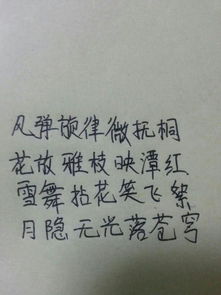 风弹旋律微抚桐
花故雅枝映潭红
雪舞拈花笑飞絮
月隐无光落苍穹